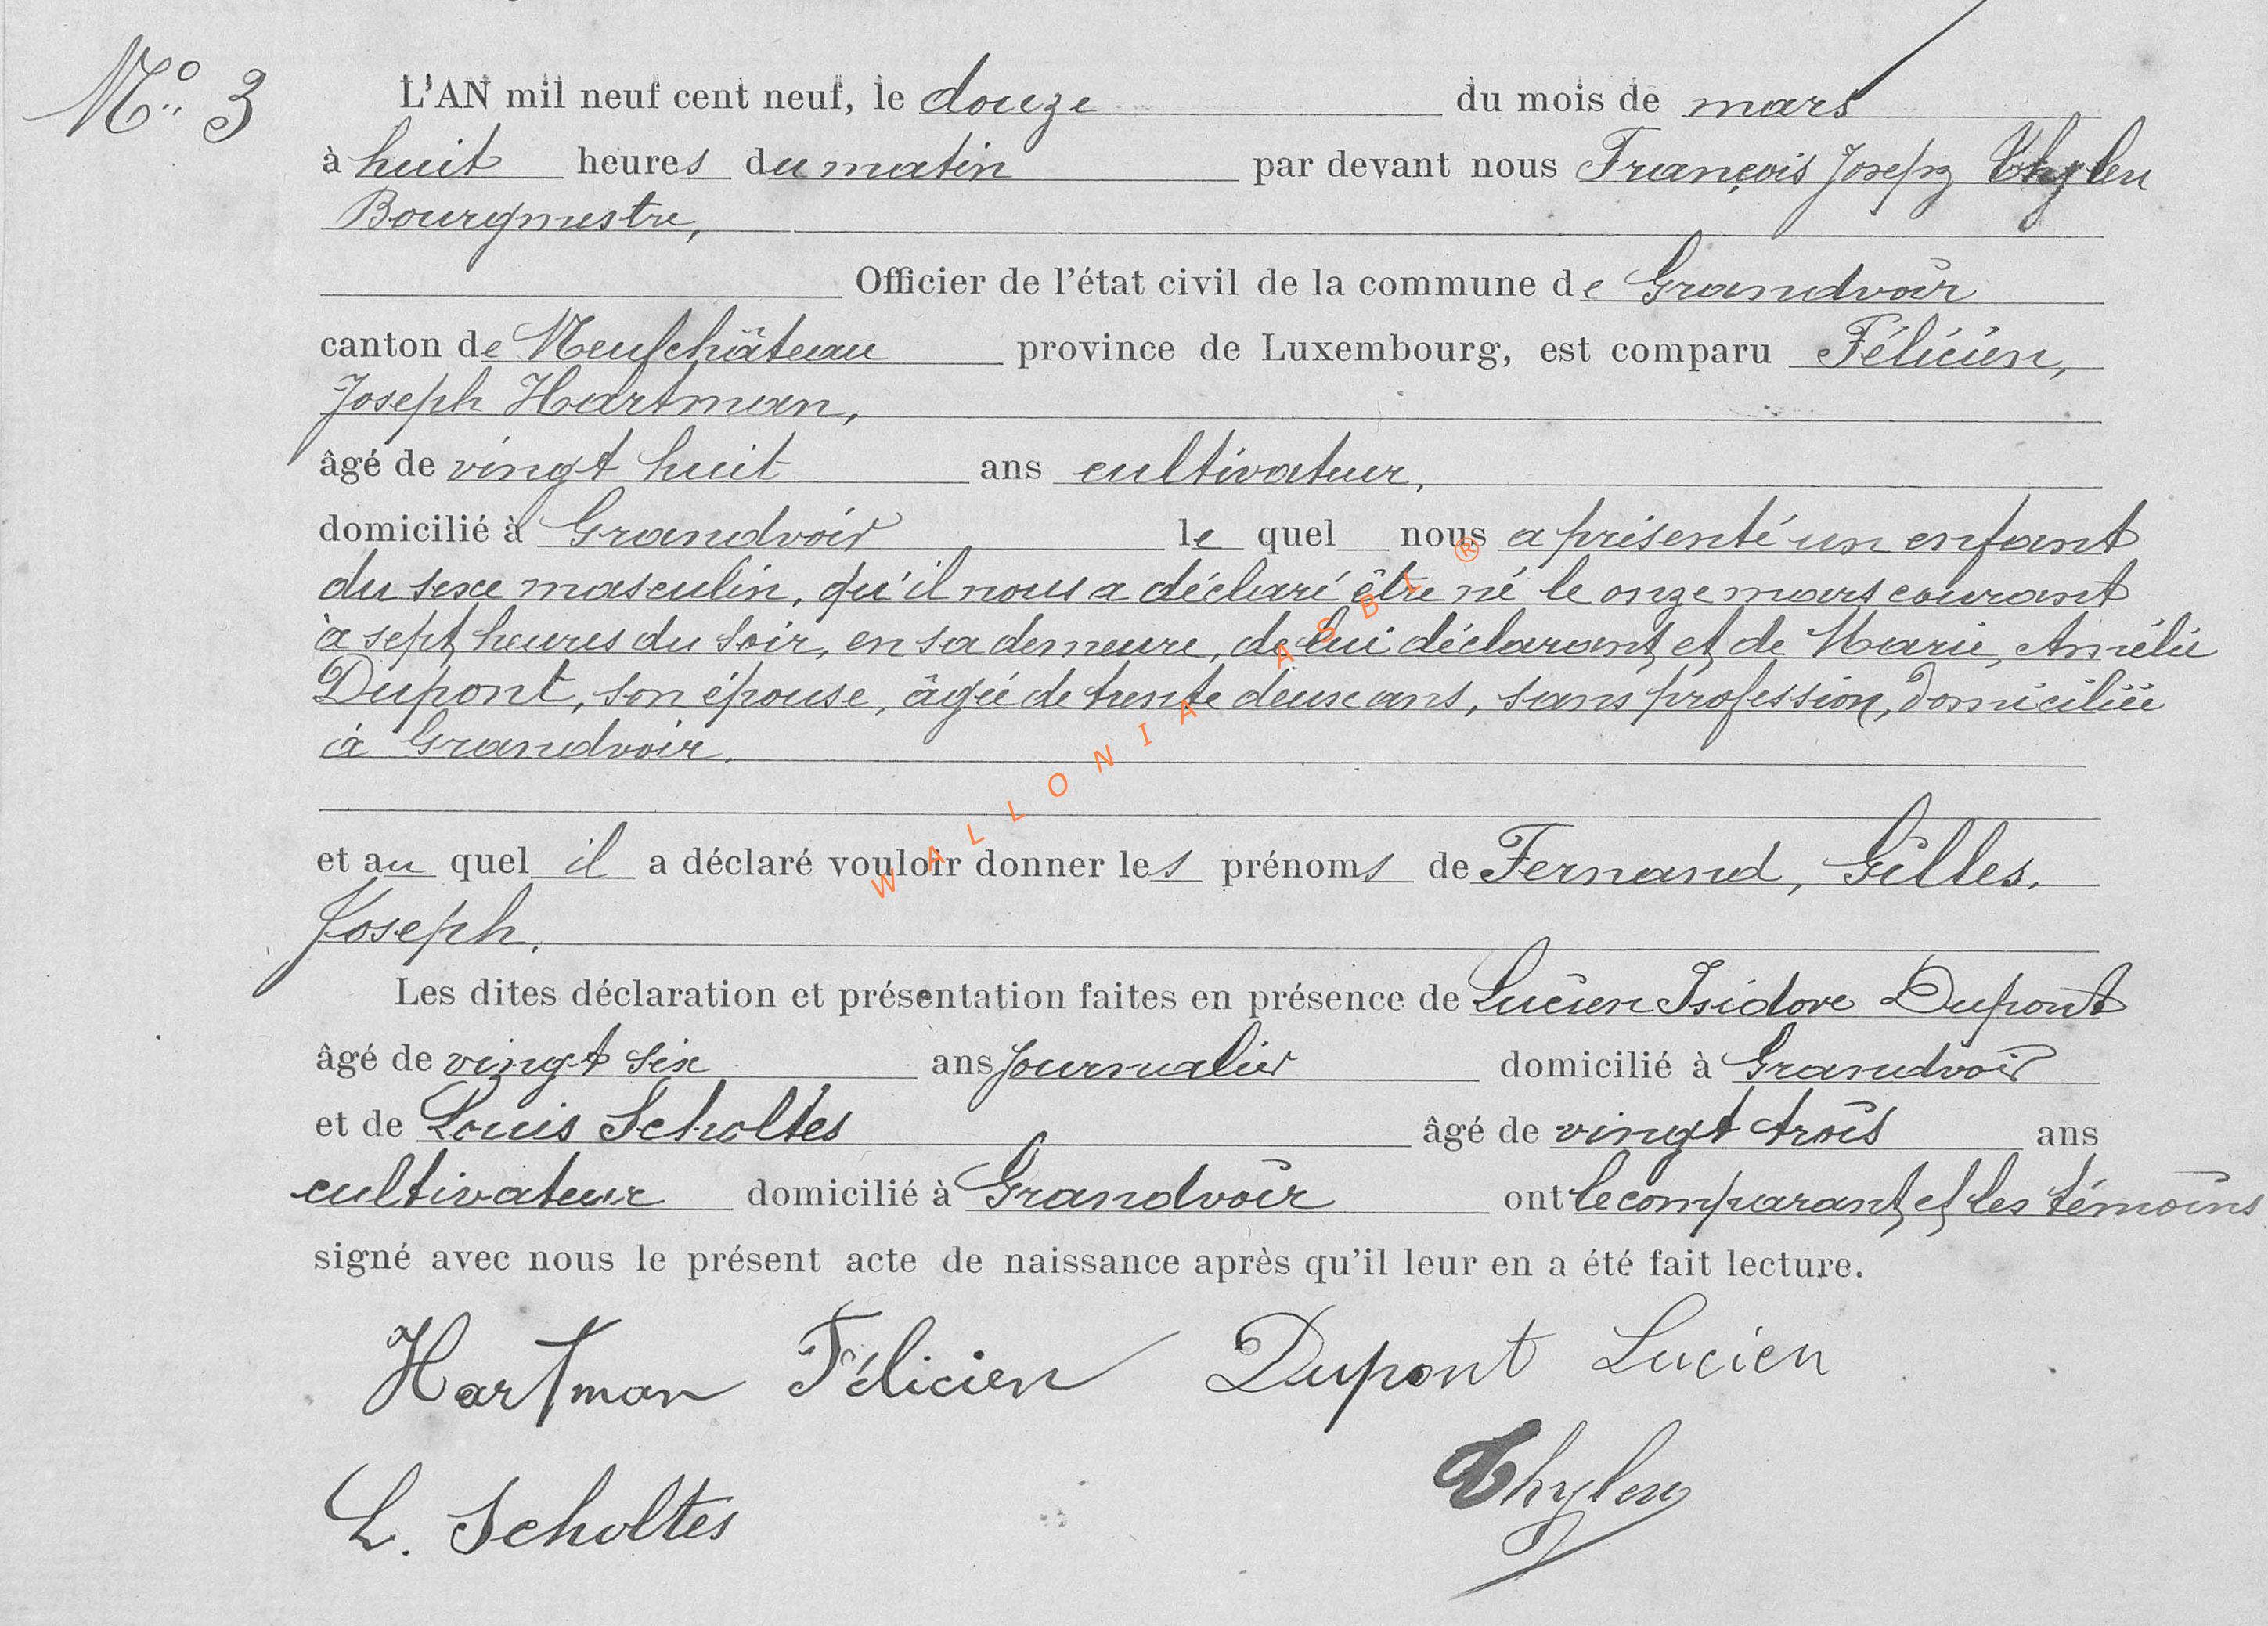 N° 3
L'AN mil neuf cent neuf, le douze du mois de mars
à huit heures du matin par devant nous François Joseph Thylen
Bourgmestre,
Officier de l'état civil de la commune de Grandvoir
canton de Neufchâteau province de Luxembourg, est comparu Félicien,
Joseph Hartman,
âgé de vingt huit ans cultivateur,
domicilié à Grandvoir le quel nous a présenté un enfant
du sexe masculin, qu'il nous a déclaré être né le onze mars courant
à sept heures du soir, en sa demeure, de lui déclarant et de Marie, Amélie
Dupont, son épouse, âgée de trente deux ans, sans profession, domiciliée
à Grandvoir.
et au quel il a déclaré vouloir donner les prénoms de Fernand, Gilles,
Joseph.
Les dites déclaration et présentation faites en présence de Lucien Isidore Dupont
âgé de vingt six ans journalier domicilié à Grandvoir
et de Louis Scholtes âgé de vingt trois ans
cultivateur domicilié à Grandvoir ont le comparant et les témoins
signé avec nous le présent acte de naissance après qu'il leur en a été fait lecture.
Hartman Félicien Dupont Lucien
Thylen
L. Scholtes
WALLONIA ASBL ®